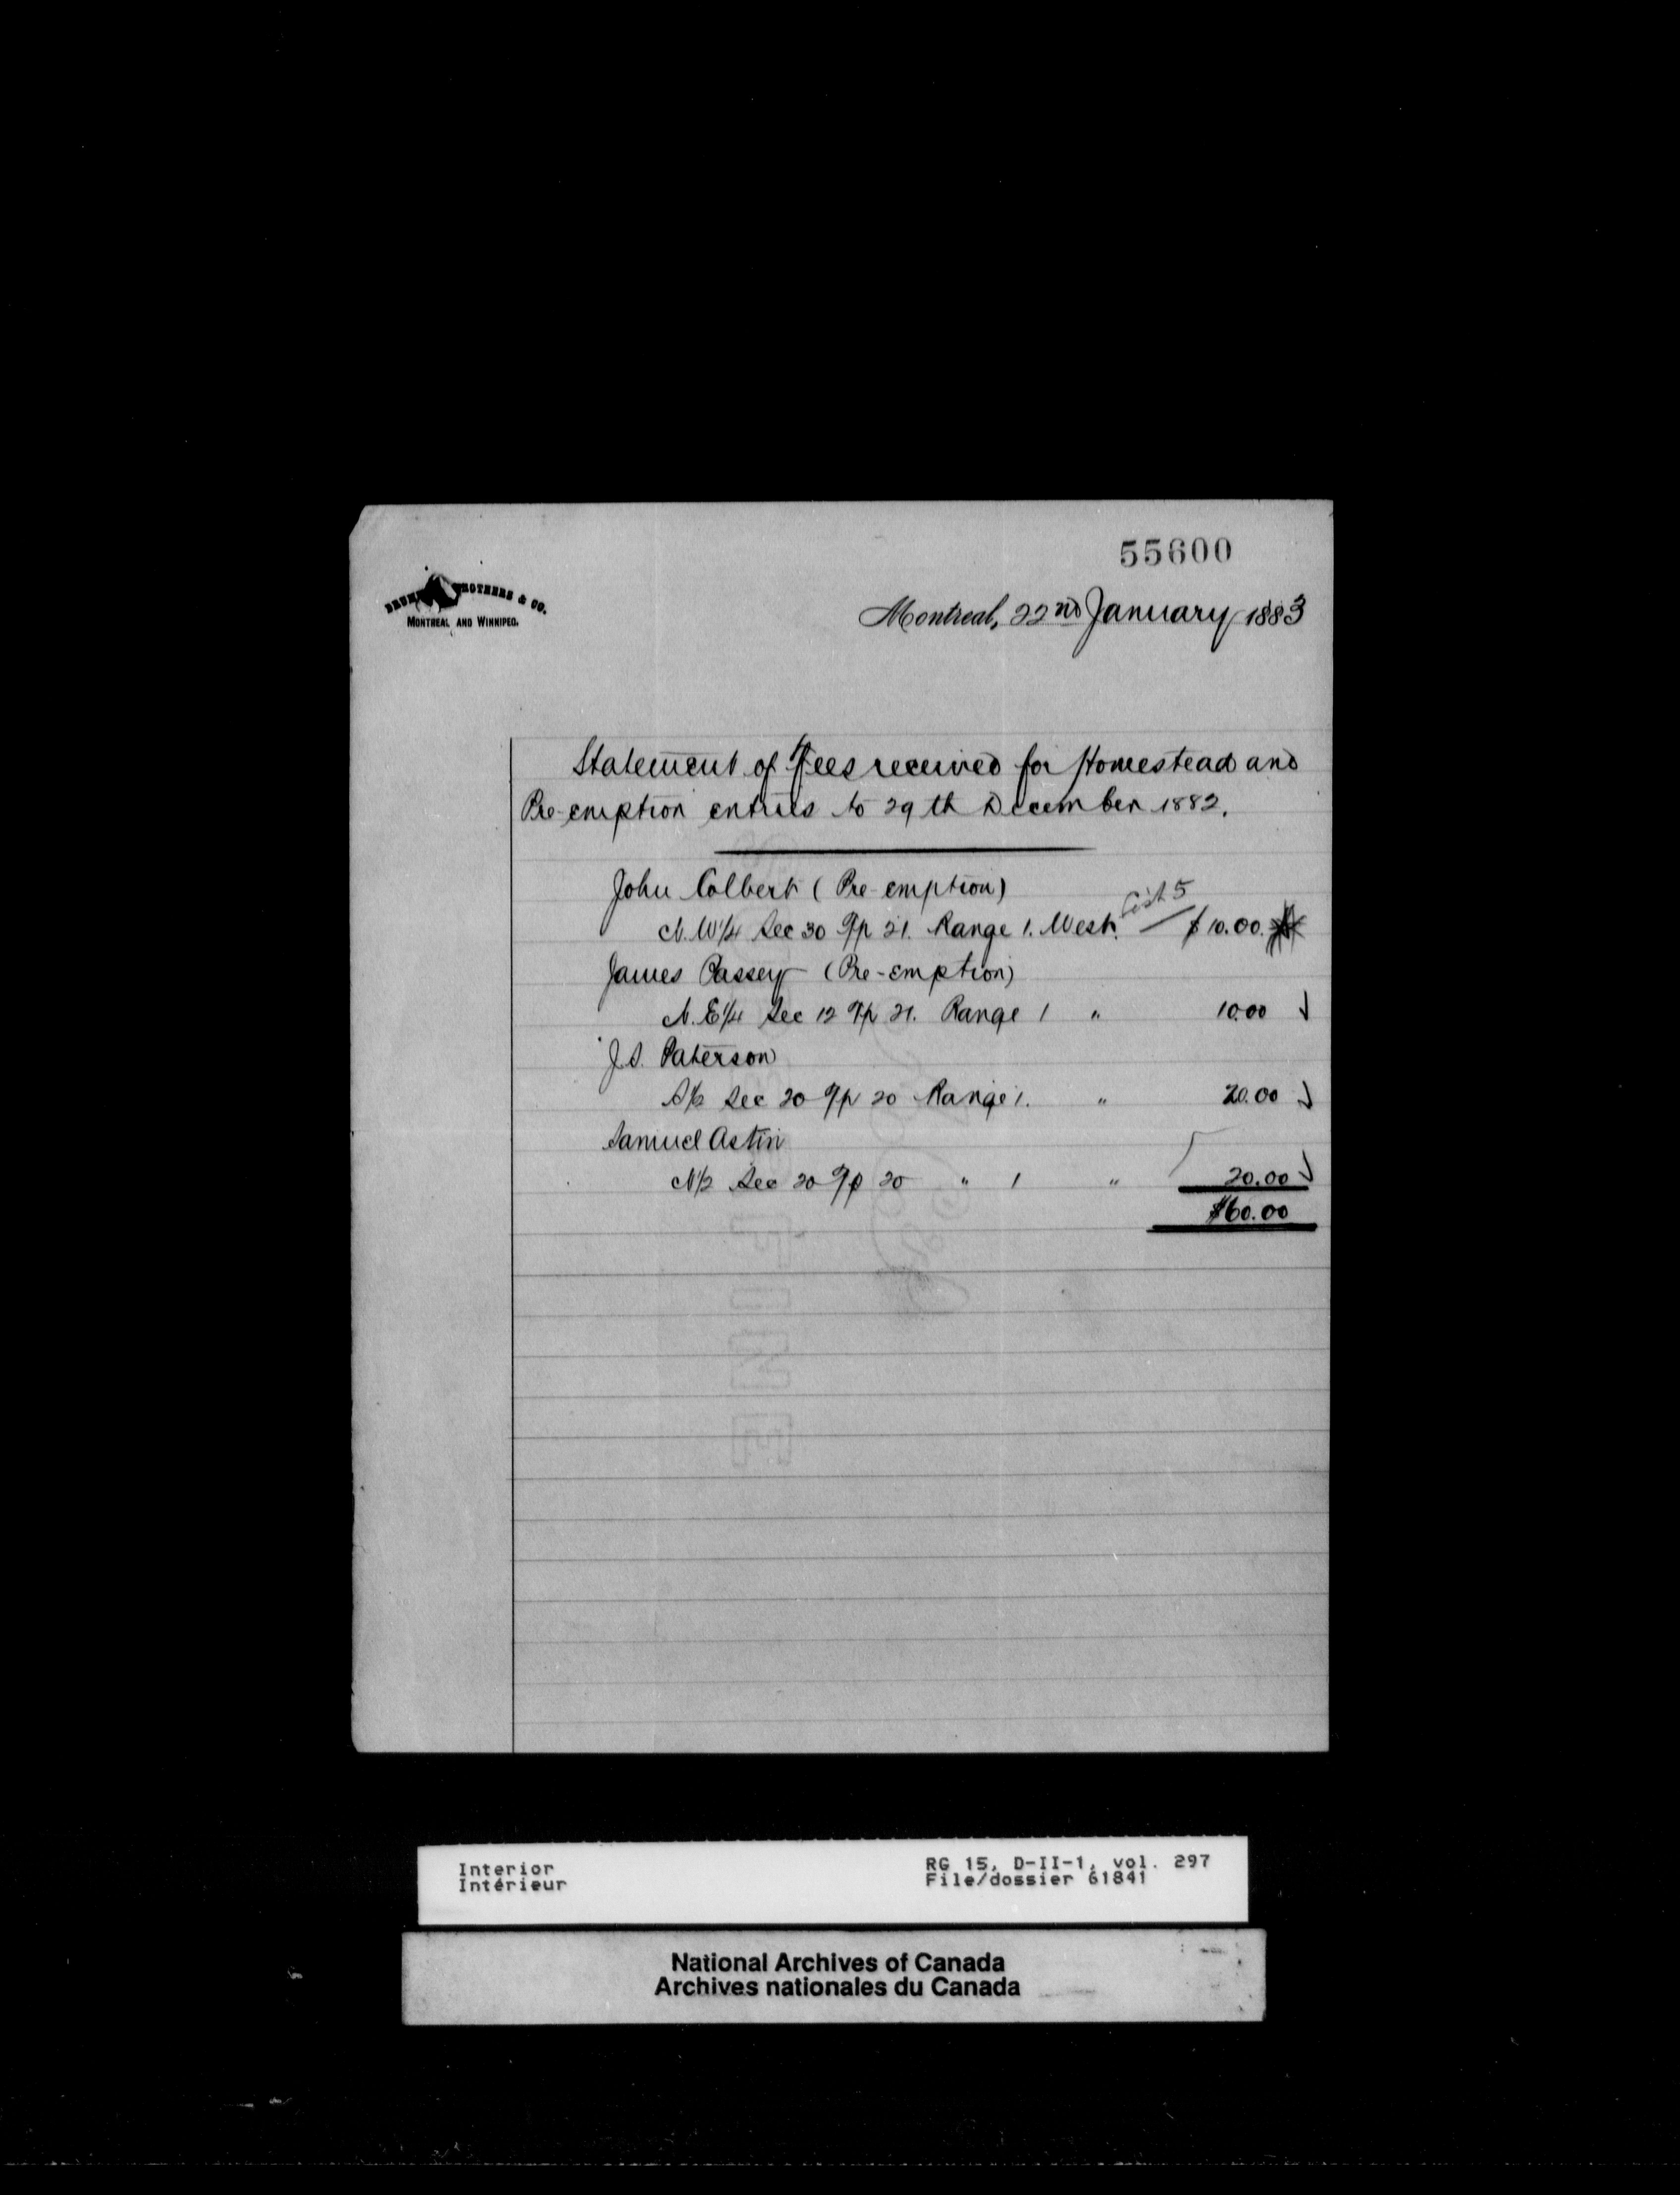 55600
BROTHERS & CO.
MONTREAL AND WINNIPEG.
Montreal, 22nd January 1883
Statement of Fees received for Homestead and
Pre-emption entries to 29th December 1882.
John Colbert (Pre-emption)
List 5
N.W¼ Sec 30 Tp 21. Range 1. West. $10.00
James Passey (Pre-emption)
N.E¼ Sec 12 Tp 21. Range 1 " 10.00
J.S. Paterson
S½ Sec 20 Tp 20 Range 1. " 20.00
Samuel Astin
N½ Sec 20 Tp 20 " 1 " 20.00
$60.00
Interior
Intérieur
RG 15, D-II-1, vol. 297
File/dossier 61841
National Archives of Canada
Archives nationales du Canada